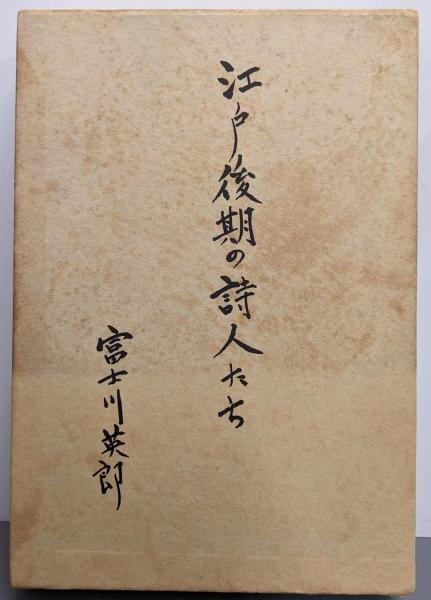 江戸後期の詩人たち
富士川英郎